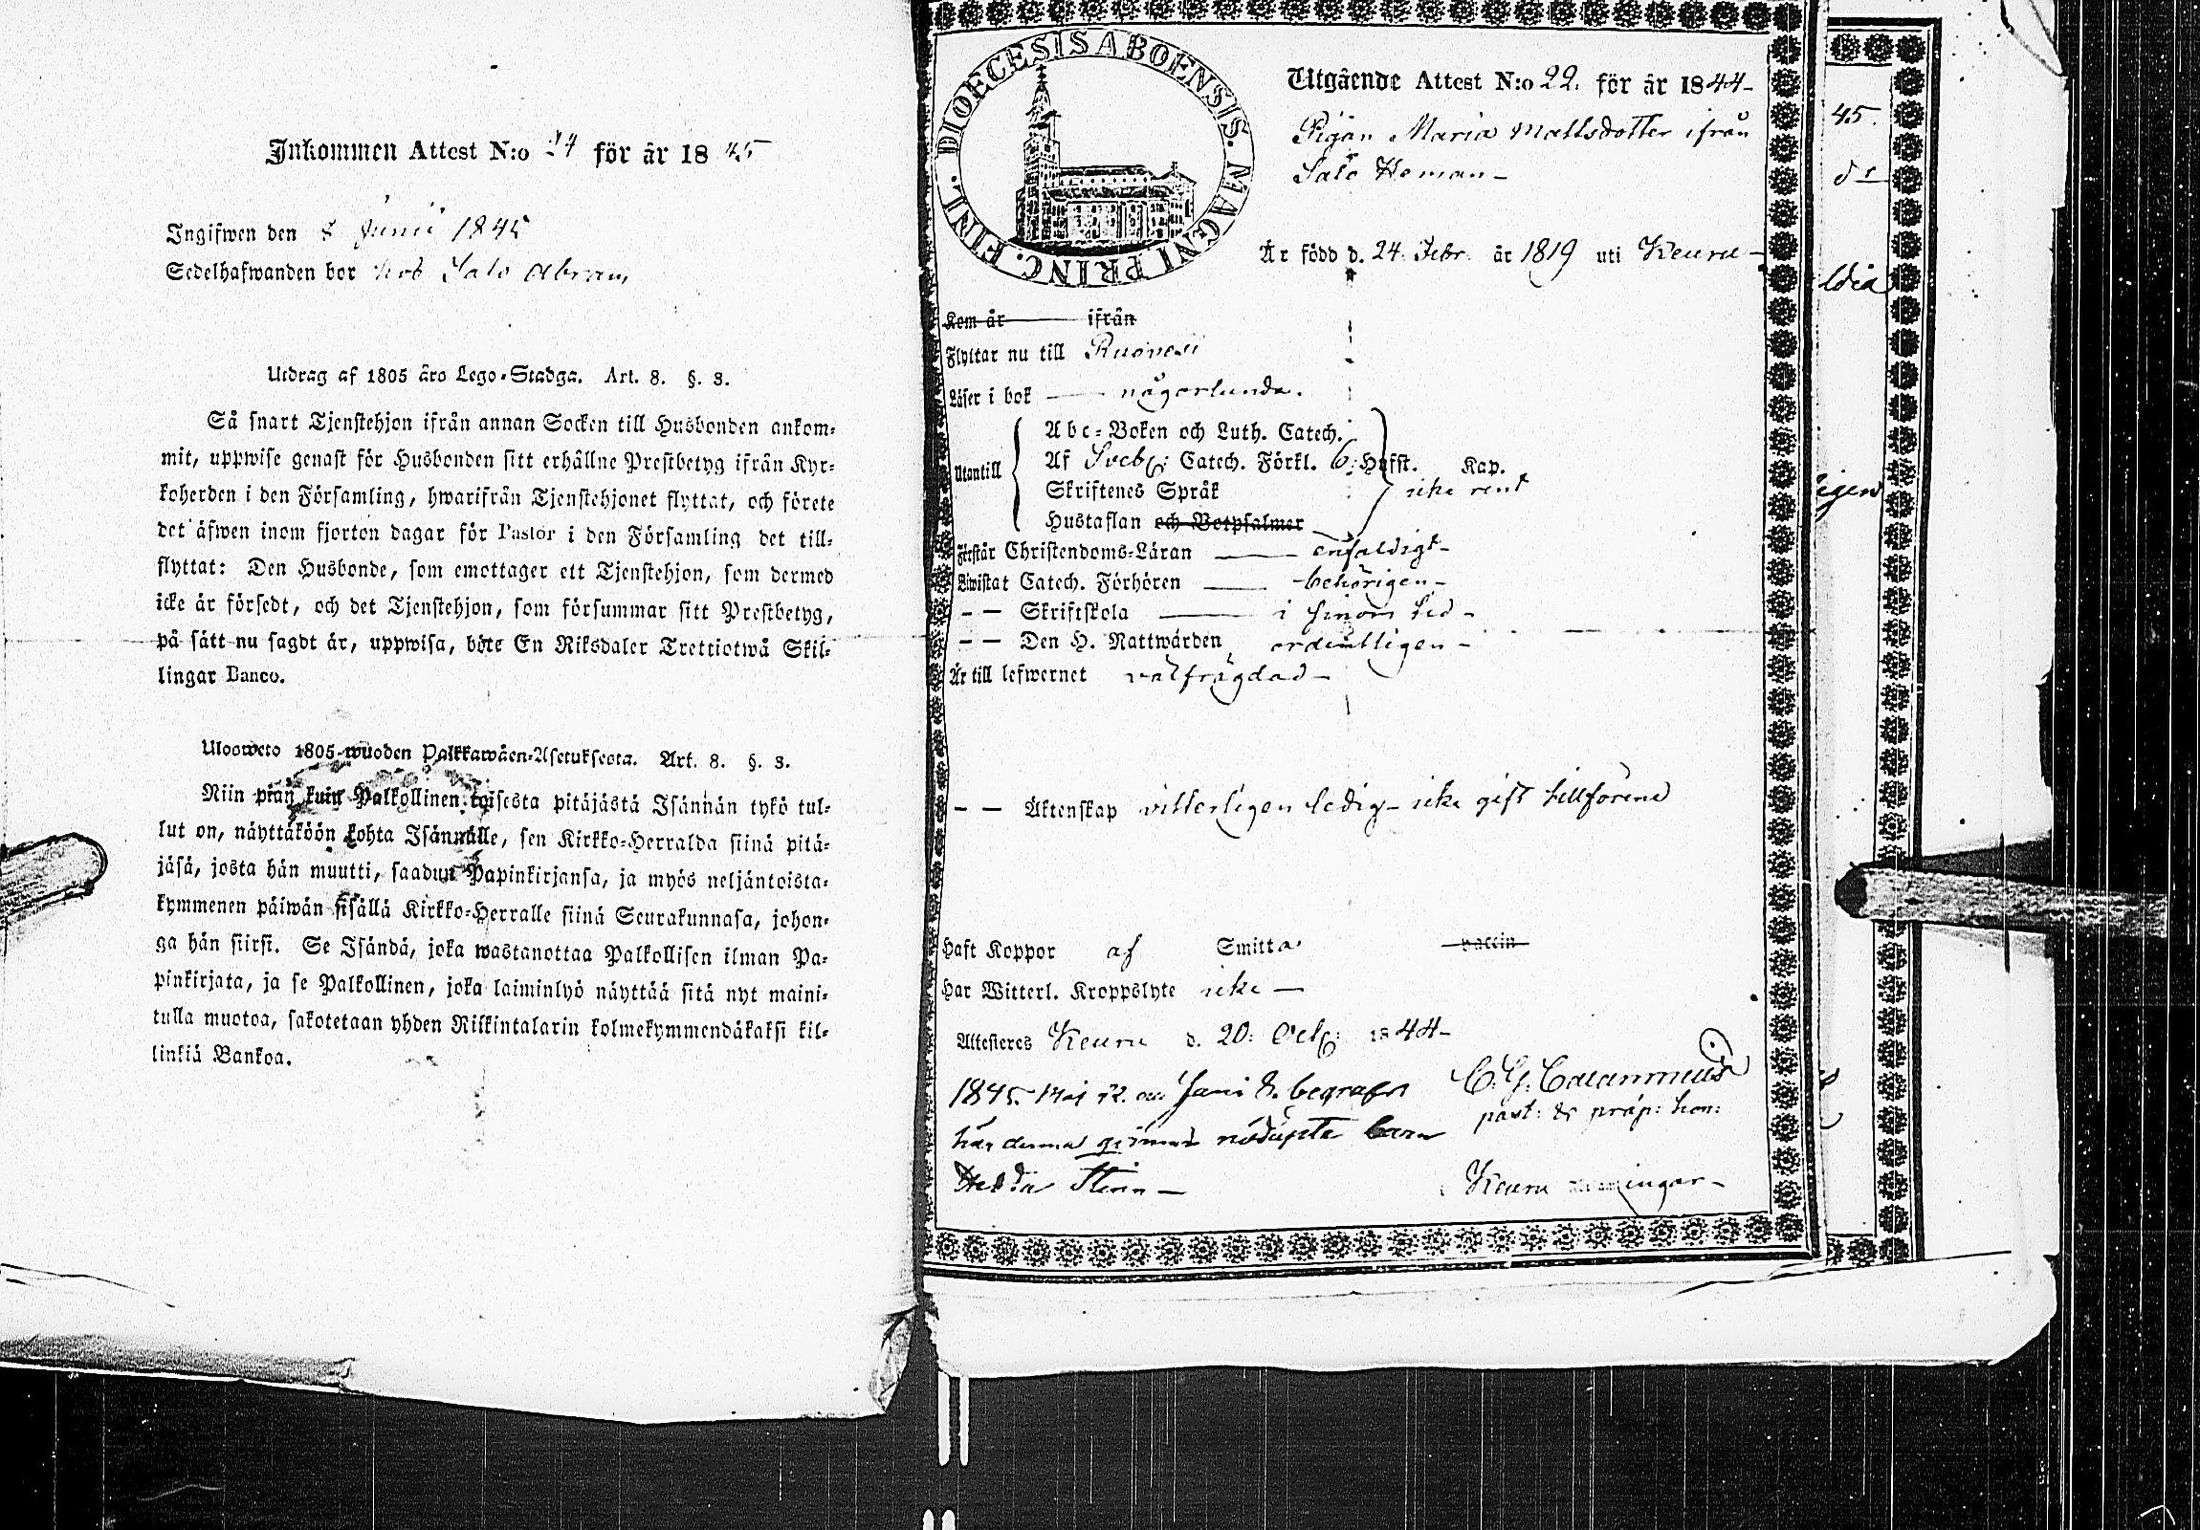 Inkommen Attest N:o 24 för år 1845
Ingifwen den 8 Junii 1845
Sedelhafwanden bor hos Salo Abram
Utdrag af 1805 åro Lego-Stadga. Art. 8. §. 3.
Så snart Tjenstehjon ifrån annan Socken till Husbonden ankom-
mit, uppwise genast för Husbonden sitt erhållne Prestbetyg ifrån Kyr-
koherden i den Församling, hwarifrån Tjenstehjonet flyttat, och förete
det äfwen inom fjorton dagar för Pastor i den Församling det till-
flyttat: Den Husbonde, som emottager ett Tjenstehjon, som dermed
icke är försedt, och det Tjenstehjon, som försummar sitt Prestbetyg,
på sätt nu sagdt är, uppwisa, böte En Riksdaler Trettiotwå Skil-
lingar Banco.
Ulosweto 1805-wuoden Palkkawäen-Asetuksesta. Art. 8. §. 3.
Niin pian kuin Palkollinen toisesta pitäjästä Isännän tykö tul-
lut on, näyttäköön kohta Isännälle, sen Kirkko-Herralda siinä pitä-
jäsä, josta hän muutti, saadun Papinkirjansa, ja myös neljäntoista-
kymmenen päiwän sisällä Kirkko-Herralle siinä Seurakunnasa, johon-
ga hän siirsi. Se Isändä, joka wastanottaa Palkollisen ilman Pa-
pinkirjata, ja se Palkollinen, joka laiminlyö näyttää sitä nyt maini-
tulla muotoa, sakotetaan yhden Riikintalarin kolmekymmendäkaksi kil-
linkiä Bankoa.
DIOECESIS ABOENSIS. MAGNI PRINC. FINL.
Utgående Attest N:o 22. för år 1844-
Pigan Maria Mattsdotter ifrån
Salo Heman-
Är född d. 24. Febr. år 1819 uti Keuru-
Kom år ifrån
Flyttar nu till Ruovesi
Läser i bok — någorlunda.
Utantill
Abc-Boken och Luth. Catech.
Af Sveb: Catech. Förkl. 6: Hufst. Kap.
Skriftenes Språk icke rent
Hustaflan och Botpsalmer
Förstår Christendoms-Läran — enfaldigt-
Biwistat Catech. Förhören — behörigen-
— — Skriftskola — i sinom tid-
— — Den H. Nattwarden ordentligen-
Är till lefwernet välfrägdad-
— — Äktenskap vitterligen ledig- icke gift tillförene
Haft Koppor af Smitta vaccin
Har Witterl. Kroppslyte icke —
Attesteres Keuru d. 20: Oct: 1844-
1845. Maj 12. Junii 8. begrafs C. G. Calamnius
här denna nödöpta barn past: & præp: hon:
Hedda Stina — Keuru
45.